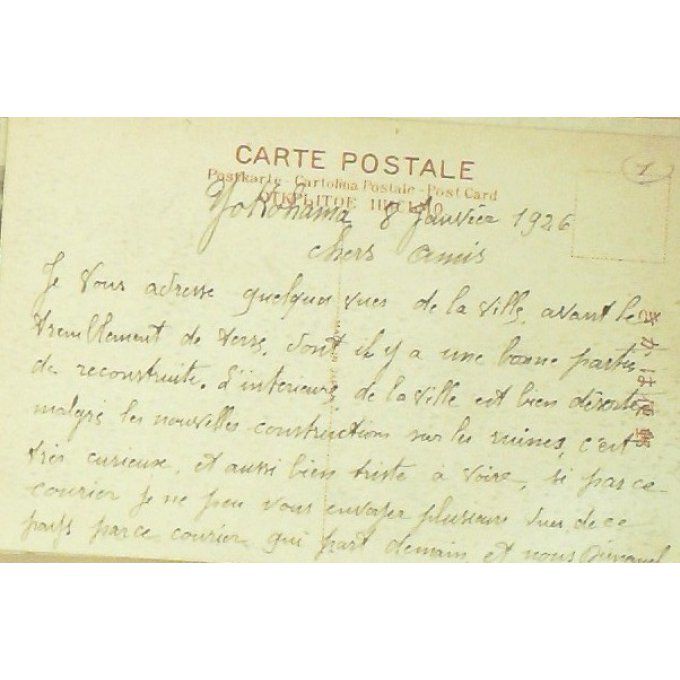 CARTE POSTALE
Postkarte - Cartolina Postale - Post Card
ОТКРЫТОЕ ПИСЬМО
Yokohama 8 Janvier 1926
chers amis
Je vous adresse quelques vues de la ville, avant le
tremblement de terre, dont il y a une bonne partie
de reconstruite. L'interieur, de la ville est bien désolé,
malgré les nouvelles constructions sur les ruines, c'est
très curieuse, et aussi bien triste à voire, si par ce
courier je ne peu vous envoyer plusieurs vues de ce
pays par ce courier qui part demain et nous